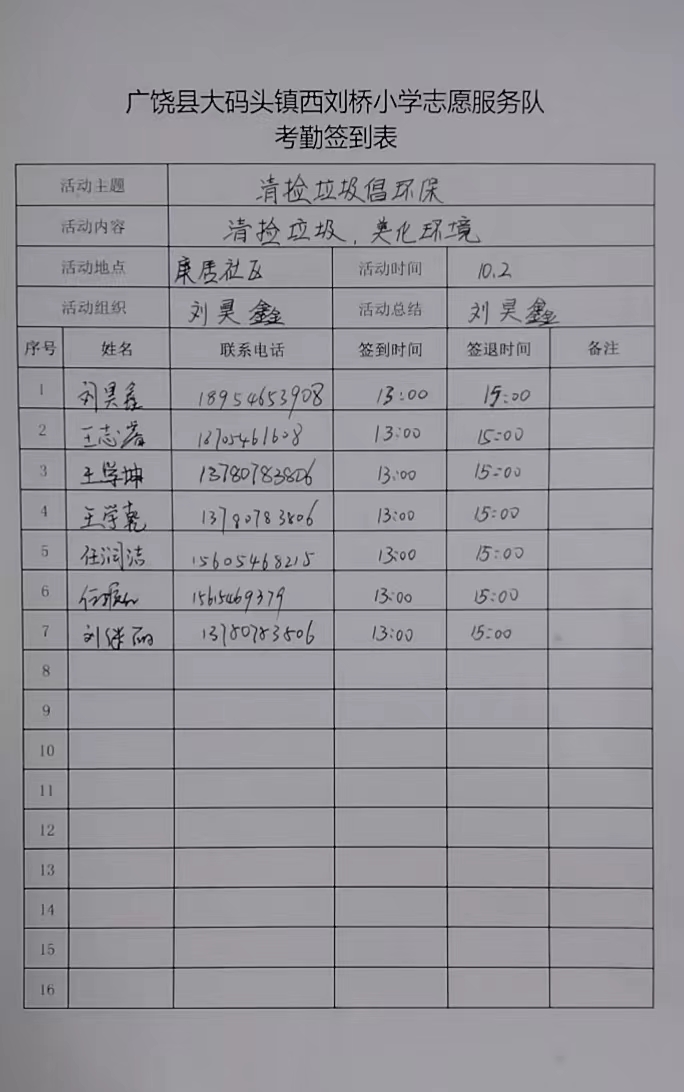 广饶县大码头镇西刘桥小学志愿服务队
考勤签到表
活动主题 清捡垃圾倡环保
活动内容 清捡垃圾，美化环境
活动地点 康居社区 活动时间 10.2
活动组织 刘昊鑫 活动总结 刘昊鑫
序号 姓名 联系电话 签到时间 签退时间 备注
1 刘昊鑫 18954653908 13:00 15:00
2 王志 18705461608 13:00 15:00
3 王学坤 13780783806 13:00 15:00
4 王学乾 13780783806 13:00 15:00
5 任润洁 15605468215 13:00 15:00
6 任 15615469379 13:00 15:00
7 刘继丽 13780783806 13:00 15:00
8
9
10
11
12
13
14
15
16